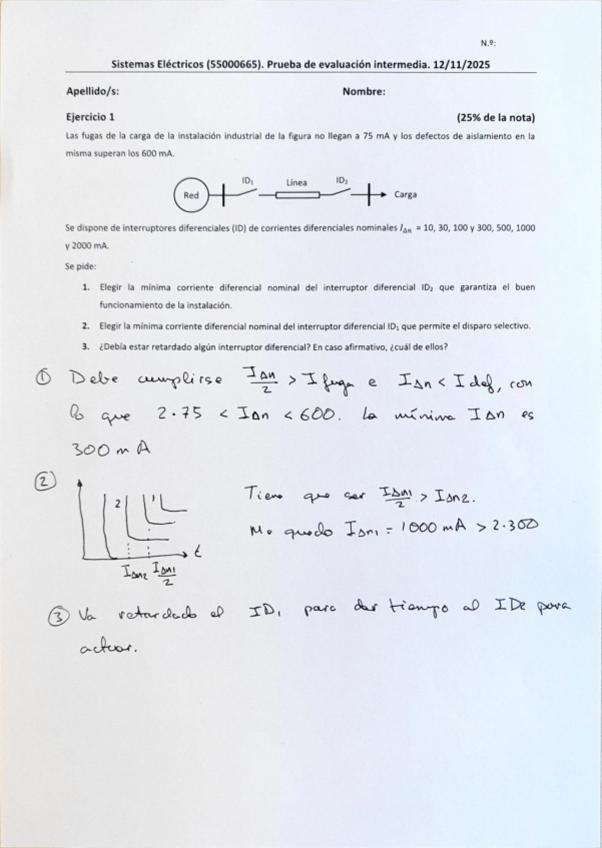 N.º:
Sistemas Eléctricos (55000665). Prueba de evaluación intermedia. 12/11/2025
Apellido/s: Nombre:
Ejercicio 1 (25% de la nota)
Las fugas de la carga de la instalación industrial de la figura no llegan a 75 mA y los defectos de aislamiento en la
misma superan los 600 mA.
Red ID₁ Línea ID₂ Carga
Se dispone de interruptores diferenciales (ID) de corrientes diferenciales nominales IΔn = 10, 30, 100 y 300, 500, 1000
y 2000 mA.
Se pide:
1. Elegir la mínima corriente diferencial nominal del interruptor diferencial ID₂ que garantiza el buen
funcionamiento de la instalación.
2. Elegir la mínima corriente diferencial nominal del interruptor diferencial ID₁ que permite el disparo selectivo.
3. ¿Debía estar retardado algún interruptor diferencial? En caso afirmativo, ¿cuál de ellos?
① Debe cumplirse IΔn/2 > I fuga e IΔn < I def, con
lo que 2·75 < IΔn < 600. La mínima IΔn es
300 mA
② Tiene que ser IΔn1/2 > IΔn2.
Me quedo IΔn1 = 1000 mA > 2·300
2 1
t
IΔn2 IΔn1/2
③ Va retardado el ID₁ para dar tiempo al ID2 para
actuar.